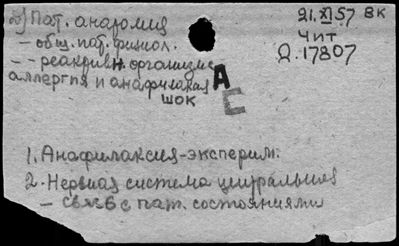 б) Пат. анатомия
21.XI 57 ВК
– общ. пат. физиол.
Чит
Д.17807
– – реактивн. организма
аллергия и анафилакт.
шок
А
С
1. Анафилаксия-эксперим.
2. Нервная система центральная
– связь с пат. состояниями